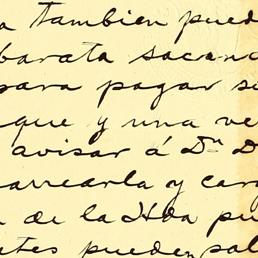 a tambien pued
barata sacand
para pagar se
que y una ve
avisar á Dn D
arrearla y car
n de la Hda pu
ntes pueden sal